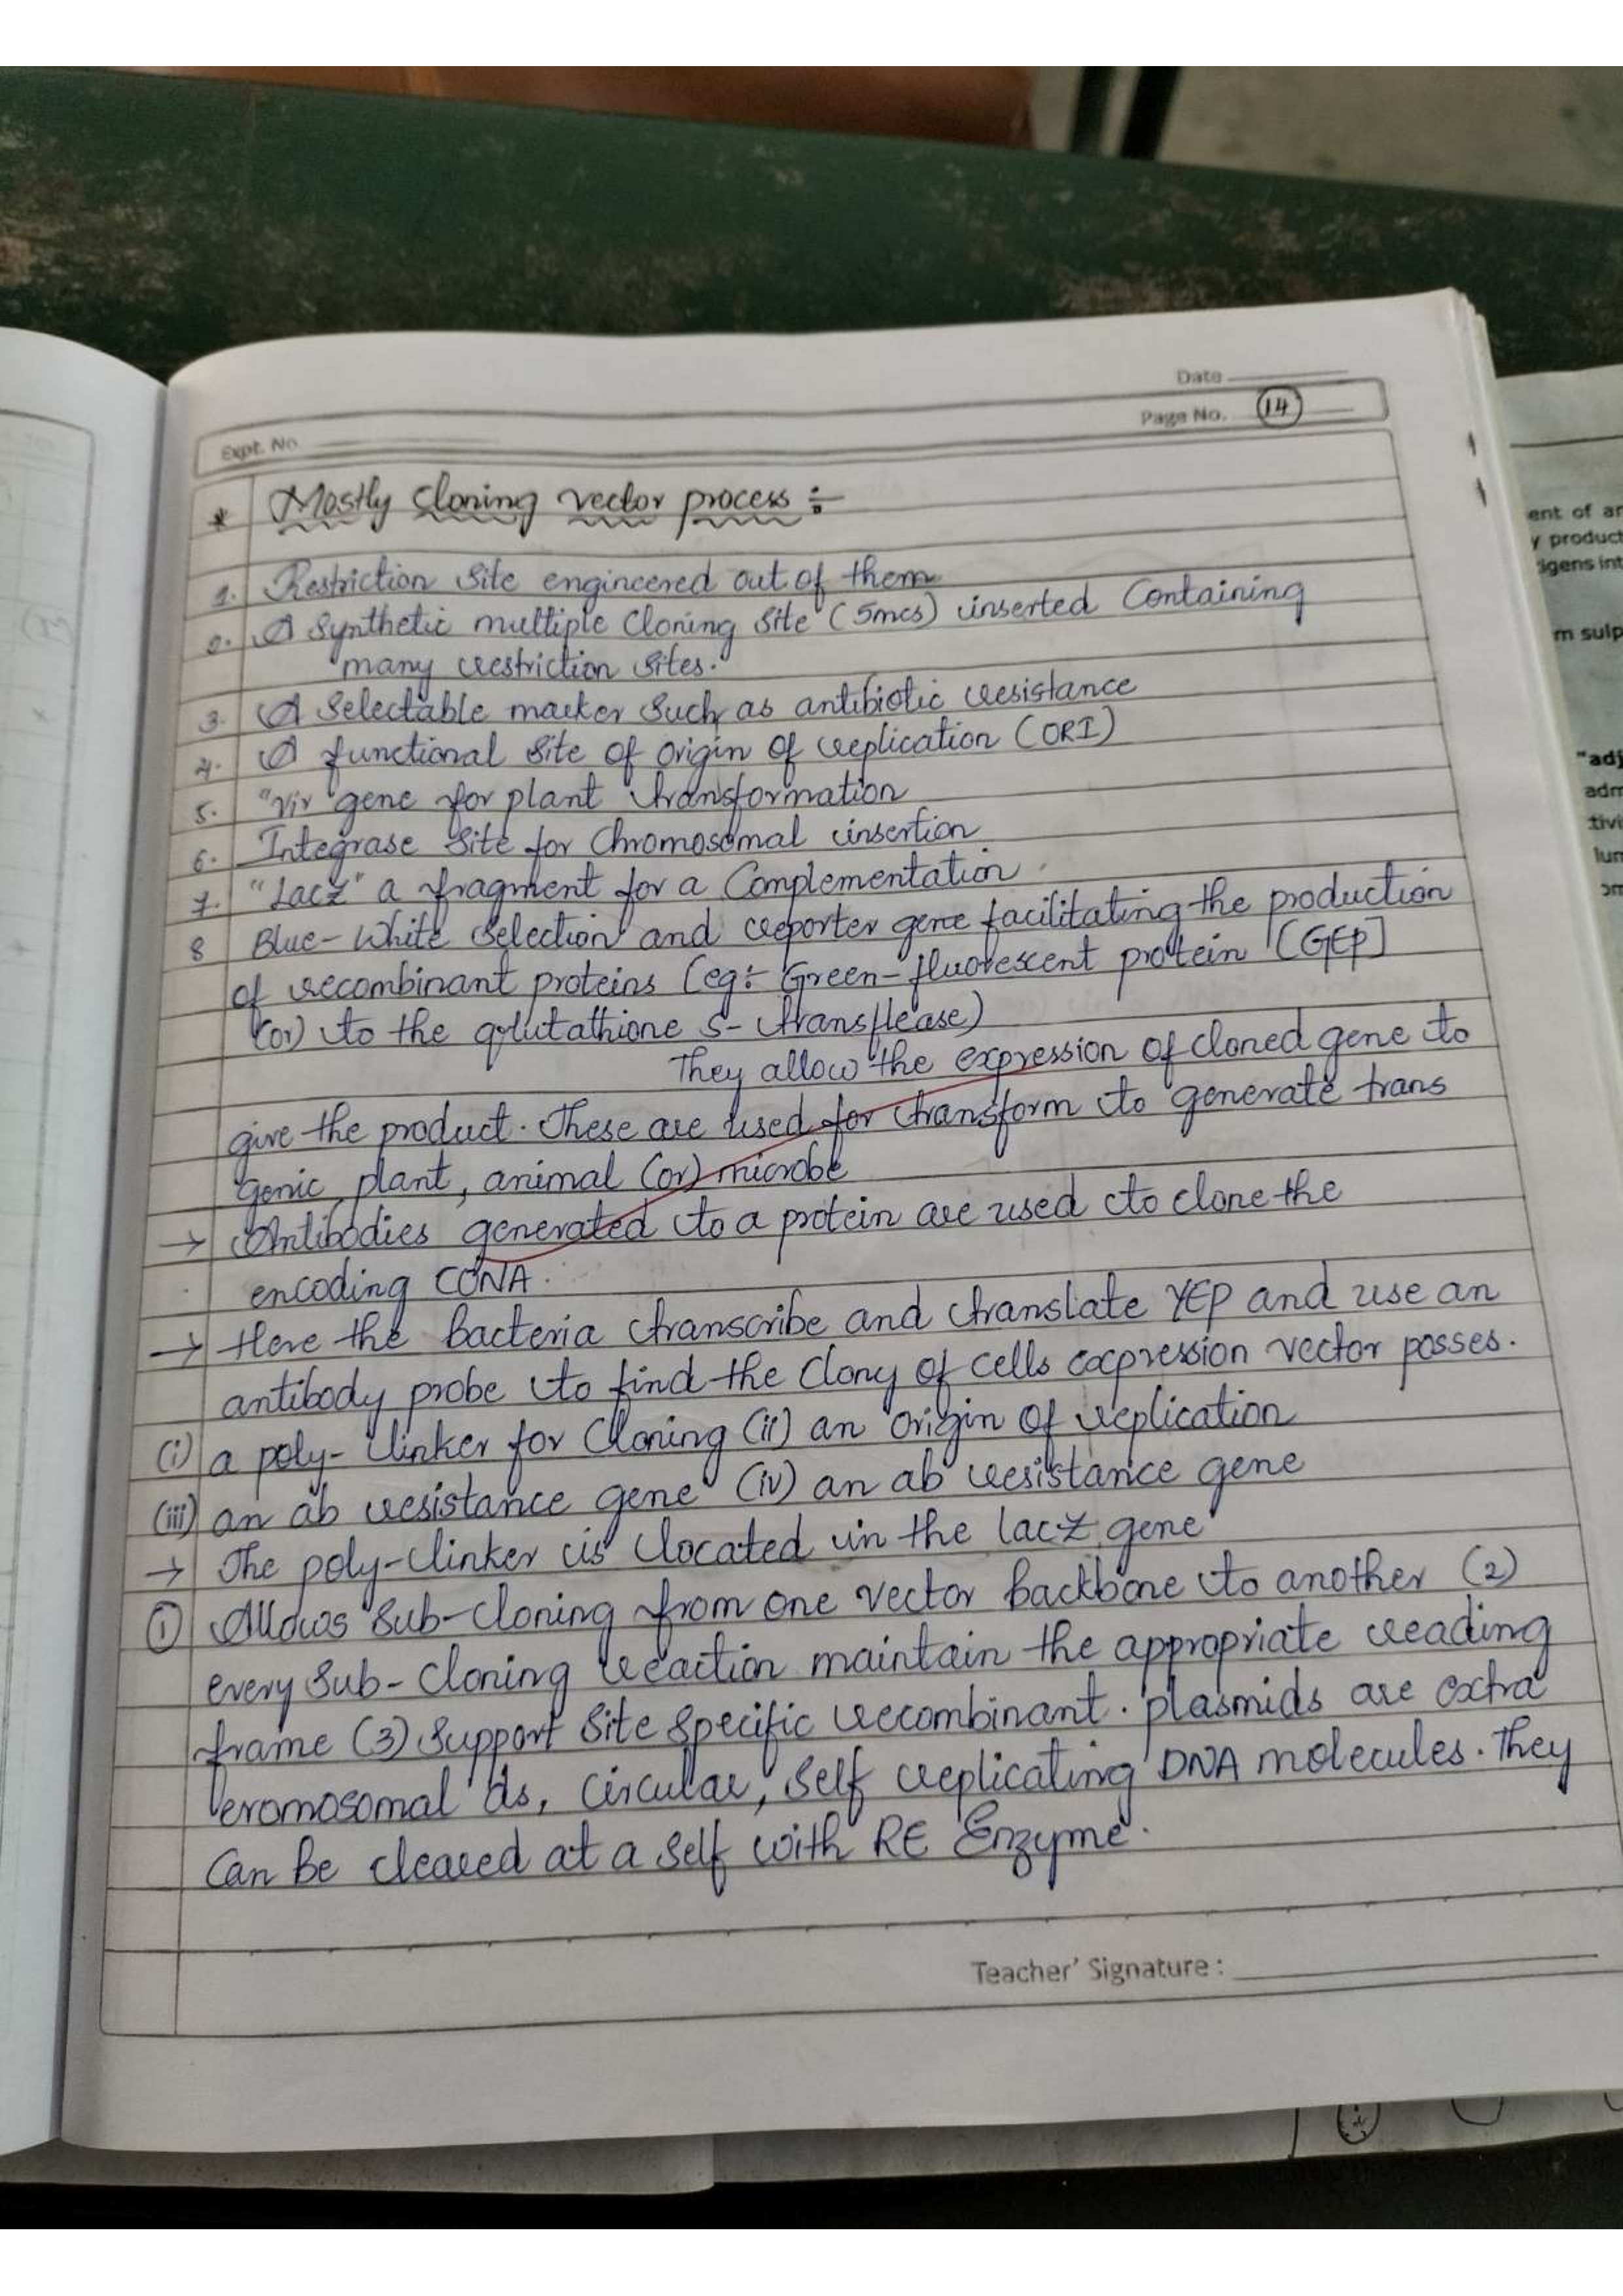 Date
Page No. 14
Expt. No.
* Mostly Cloning vector process :-
1. Restriction site engineered out of them
2. A Synthetic multiple Cloning site (5mcs) inserted Containing
many restriction sites.
3. A Selectable marker Such as antibiotic resistance
4. A functional site of origin of replication (ORI)
5. "Vir" gene for plant transformation
6. Integrase site for Chromosomal insertion
7. "Lacz" a fragment for a Complementation
8 Blue-White Selection and reporter gene facilitating the production
of recombinant proteins (eg:- Green-fluorescent protein [GFP]
(or) to the glutathione S-transflease)
They allow the expression of cloned gene to
give the product. These are used for transform to generate trans
genic plant, animal (or) microbe
→ Antibodies generated to a protein are used to clone the
encoding CDNA.
→ Here the bacteria transcribe and translate YEP and use an
antibody probe to find the Clony of cells expression vector posses.
(i) a poly-linker for Cloning (ii) an origin of replication
(iii) an ab resistance gene (iv) an ab resistance gene
→ The poly-linker is located in the lacz gene
① Allows Sub-cloning from one vector backbone to another (2)
every Sub-Cloning reaction maintain the appropriate reading
frame (3) Support Site Specific recombinant. plasmids are extra
eromosomal ds, Circular, Self replicating DNA molecules. They
Can be cleared at a self with RE Enzyme.
Teacher' Signature :
ent of an
y product
igens int
m sulp
"adj
adm
tivi
lum